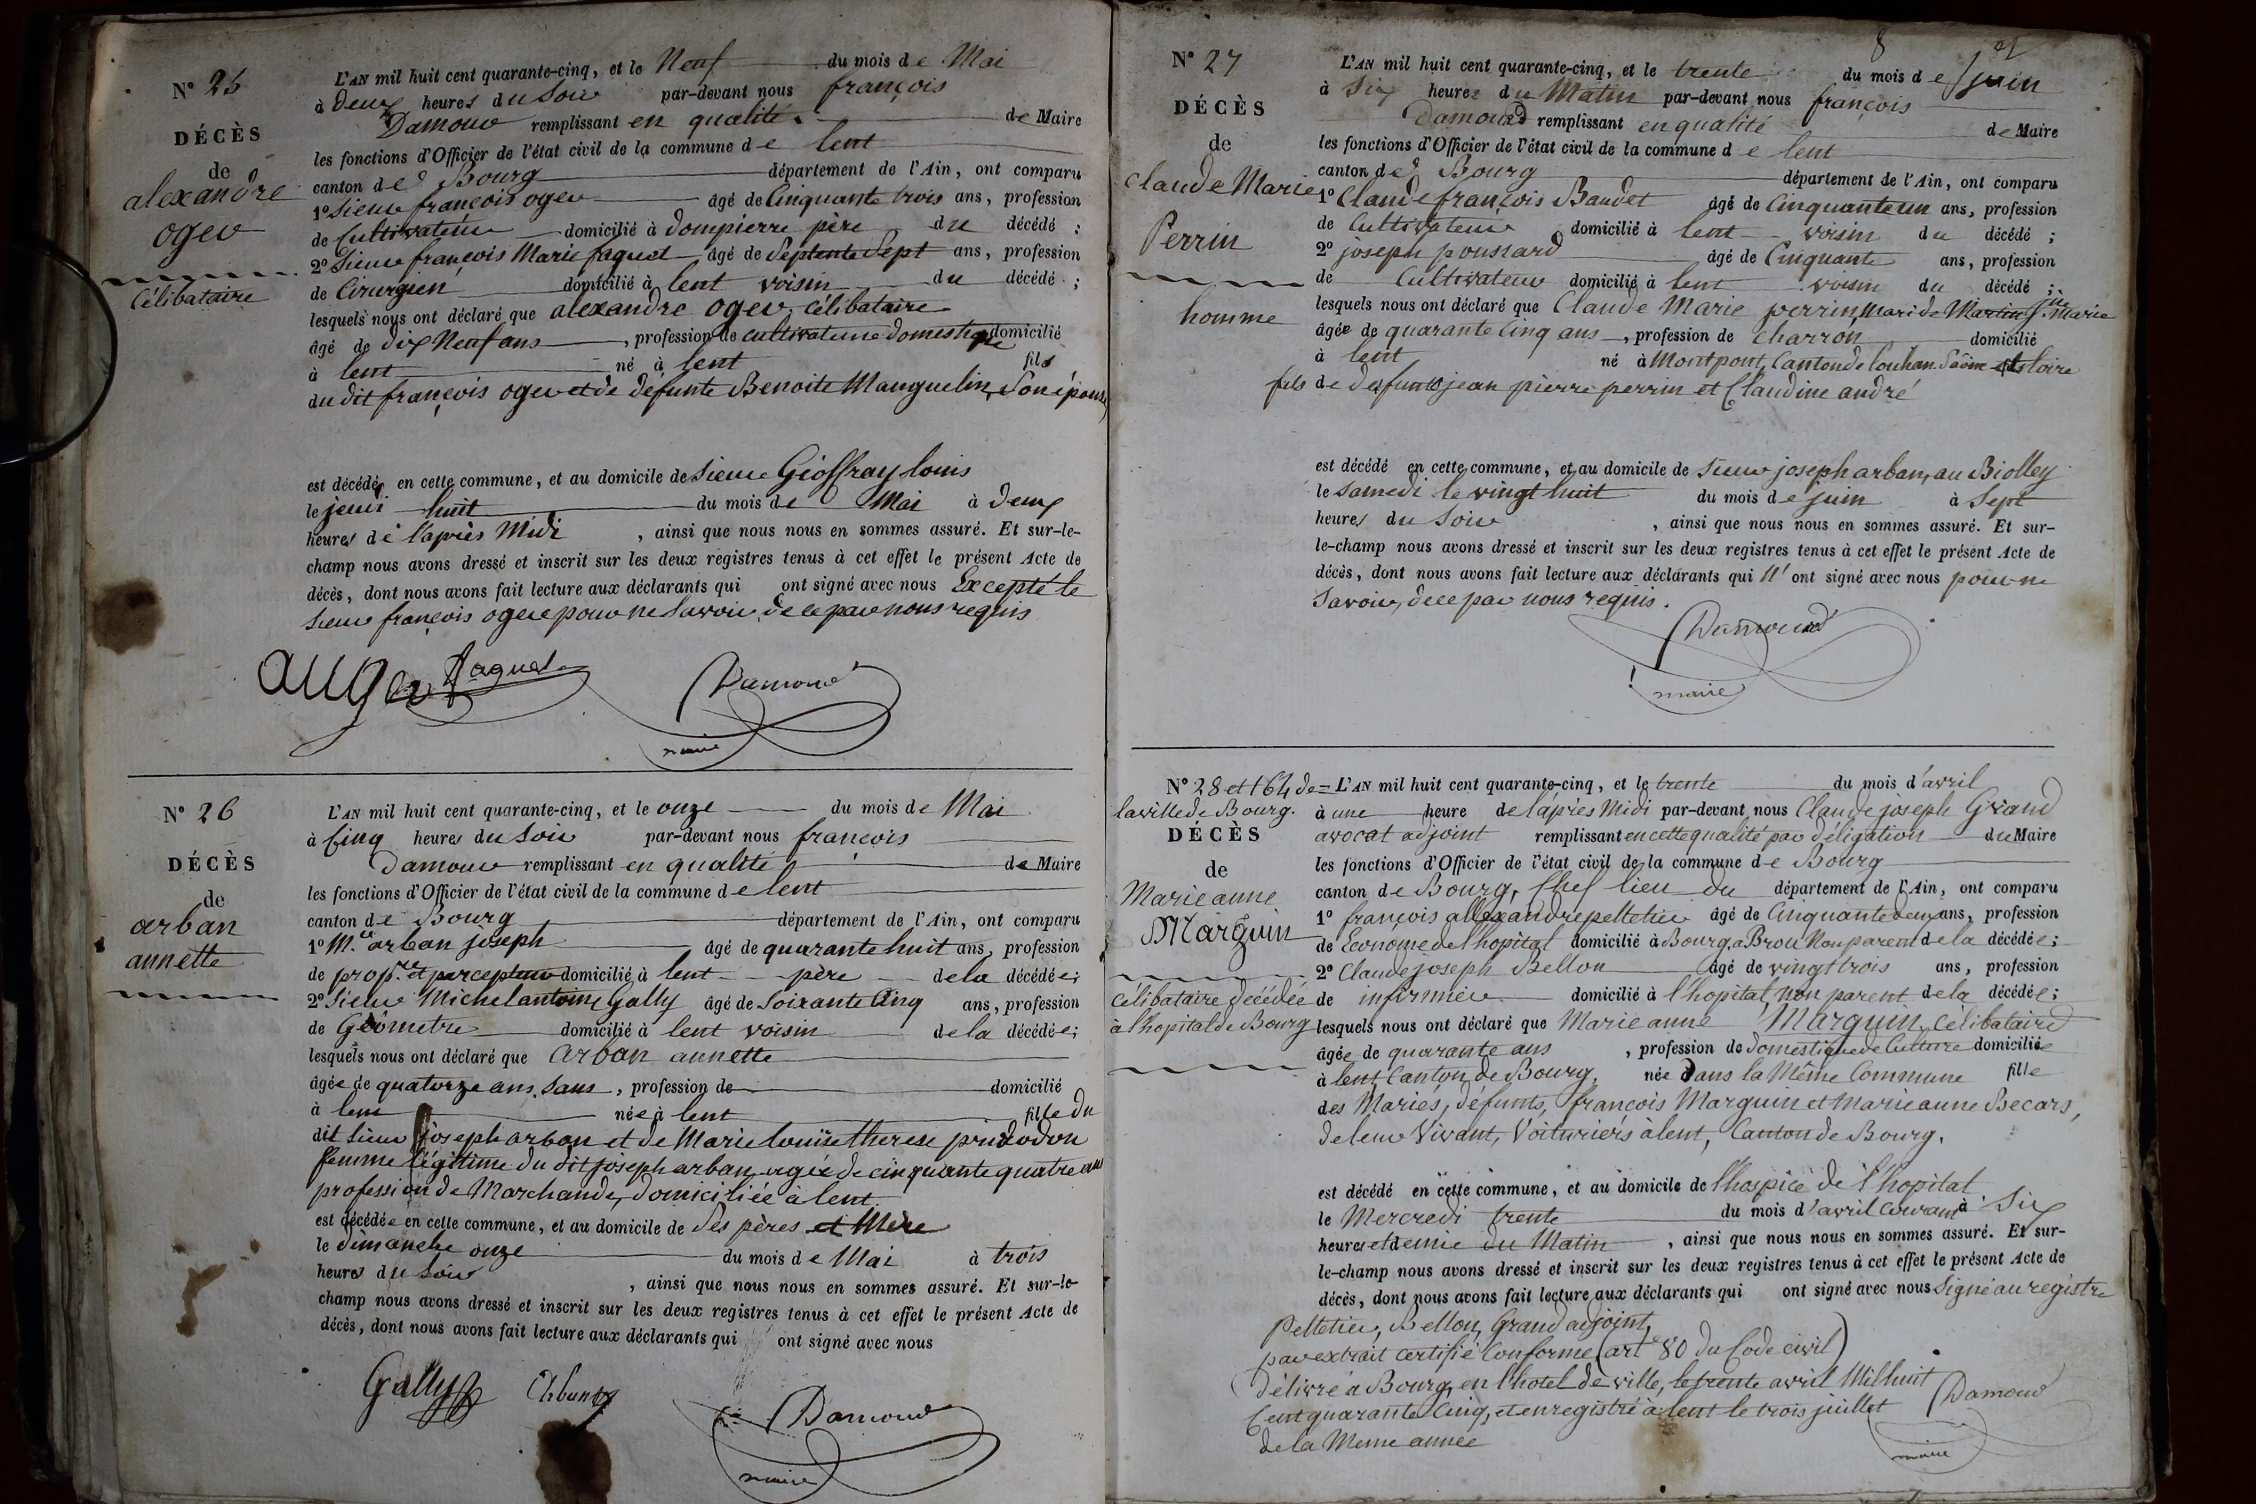 N° 25
DÉCÈS
de
alexandre
oger
Célibataire
L'AN mil huit cent quarante-cinq, et le Neuf du mois de Mai
à deux heures du Soir par-devant nous françois
Damour remplissant en qualité de Maire
les fonctions d'Officier de l'état civil de la commune de lent
canton de Bourg département de l'Ain, ont comparu
1° Sieur françois oger âgé de Cinquante trois ans, profession
de Cultivateur domicilié à dompierre père du décédé ;
2° Sieur françois Marie faguet âgé de Septente Sept ans, profession
de Cirurgien domicilié à lent voisin du décédé ;
lesquels nous ont déclaré que alexandre oger, Célibataire
âgé de dix Neuf ans, profession de cultivateur domestique domicilié
à lent né à lent fils
du dit françois oger et de défunte Benoite Manguelin, Son épouse
est décédé en cette commune, et au domicile de Sieur Gioffray louis
le jeudi huit du mois de Mai à deux
heures de l'après Midi, ainsi que nous nous en sommes assuré. Et sur-le-
champ nous avons dressé et inscrit sur les deux registres tenus à cet effet le présent Acte de
décès, dont nous avons fait lecture aux déclarants qui ont signé avec nous Excepté le
Sieur françois oger pour ne Savoir, de ce par nous requis
auger faguet Damour
maire
N° 26
DÉCÈS
de
arban
annette
L'AN mil huit cent quarante-cinq, et le onze du mois de Mai
à Cinq heures du Soir par-devant nous françois
Damour remplissant en qualité de Maire
les fonctions d'Officier de l'état civil de la commune de lent
canton de Bourg département de l'Ain, ont comparu
1° M.r arban joseph âgé de quarante huit ans, profession
de prop.re et percepteur domicilié à lent père de la décédée ;
2° Sieur Michel antoine Gally âgé de Soixante Cinq ans, profession
de Géomètre domicilié à lent voisin de la décédée ;
lesquels nous ont déclaré que arban annette
âgée de quatorze ans, Sans, profession de domicilié
à lent née à lent fille du
dit Sieur joseph arban et de Marie louise therese prudodon
femme légitime du dit joseph arban agée de cinquante quatre ans
profession de Marchande, domiciliée à lent
est décédée en cette commune, et au domicile de Ses pères et Mère
le dimanche onze du mois de Mai à trois
heures du Soir, ainsi que nous nous en sommes assuré. Et sur-le-
champ nous avons dressé et inscrit sur les deux registres tenus à cet effet le présent Acte de
décès, dont nous avons fait lecture aux déclarants qui ont signé avec nous
Gally Damour
maire
8
N° 27
DÉCÈS
de
Claude Marie
Perrin
homme
L'AN mil huit cent quarante-cinq, et le trente du mois de juin
à Six heures du Matin par-devant nous françois
Damour remplissant en qualité de Maire
les fonctions d'Officier de l'état civil de la commune de lent
canton de Bourg département de l'Ain, ont comparu
1° Claude françois Baudet âgé de Cinquante un ans, profession
de Cultivateur domicilié à lent voisin du décédé ;
2° joseph poussard âgé de Cinquante ans, profession
de Cultivateur domicilié à lent voisin du décédé ;
lesquels nous ont déclaré que Claude Marie perrin, Mari de Martin Marie
âgée de quarante Cinq ans, profession de Charron domicilié
à lent né à Montpont, Canton de louhan Saône et loire
fils de defunts jean pierre perrin et Claudine andré
est décédé en cette commune, et au domicile de Sieur joseph arban, au Biolley
le Samedi le vingt huit du mois de juin à Sept
heures du Soir, ainsi que nous nous en sommes assuré. Et sur-
le-champ nous avons dressé et inscrit sur les deux registres tenus à cet effet le présent Acte de
décès, dont nous avons fait lecture aux déclarants qui N' ont signé avec nous pour ne
Savoir, de ce par nous requis.
Damour
maire
N° 28 et 164 de
la ville de Bourg.
DÉCÈS
de
Marie anne
Marguin
Célibataire décédée
à l'hopital de Bourg
L'AN mil huit cent quarante-cinq, et le trente du mois d'avril
à une heure de l'après Midi par-devant nous Claude joseph Grand
avocat adjoint remplissant en cette qualité par déligation du Maire
les fonctions d'Officier de l'état civil de la commune de Bourg
canton de Bourg, Chef lieu du département de l'Ain, ont comparu
1° françois allexandre pelletier âgé de Cinquante deux ans, profession
de Econôme de l'hopital domicilié à Bourg, a Brou Non parent de la décédée ;
2° Claude joseph Bellon âgé de vingt trois ans, profession
de infirmier domicilié à l'hopital non parent de la décédée ;
lesquels nous ont déclaré que Marie anne Marguin, Célibataire
âgée de quarante ans, profession de domestique de Culture domiciliée
à lent, Canton de Bourg, née dans la Même Commune fille
des Mariés, défunts, françois Marguin et Marie anne Becars,
de leur Vivant, Voituriers à lent, Canton de Bourg.
est décédé en cette commune, et au domicile de l'hospice de l'hopital
le Mercredi trente du mois d'avril Courant à Six
heures et demie du Matin, ainsi que nous nous en sommes assuré. Et sur-
le-champ nous avons dressé et inscrit sur les deux registres tenus à cet effet le présent Acte de
décès, dont nous avons fait lecture aux déclarants qui ont signé avec nous Signé au registre
Pelletier, Bellon, Grand adjoint,
par extrait certifié Conforme (art 80 du Code civil)
Délivré à Bourg, en l'hotel de ville, le trente avril Mil huit
Cent quarante Cinq, et enregistré à lent le trois juillet
de la Meme année
Damour
maire